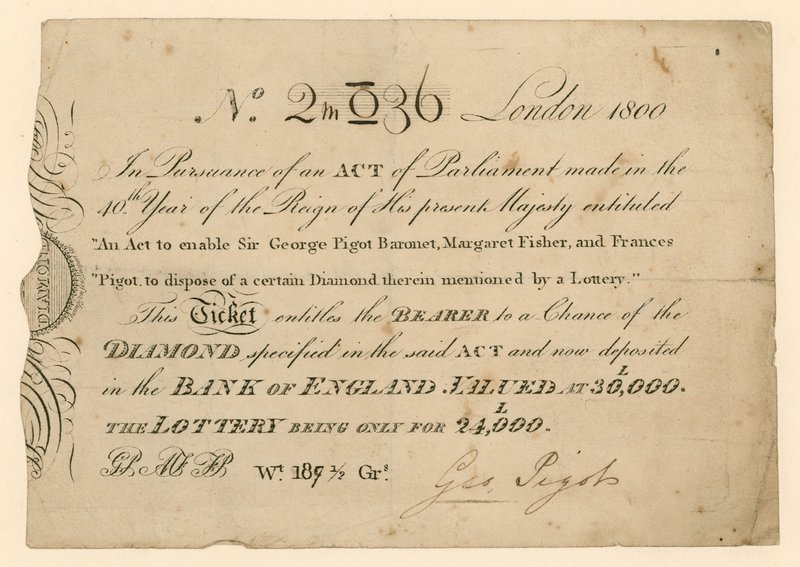 No. 2m036 London 1800
In Pursuance of an ACT of Parliament made in the
40.th Year of the Reign of His present Majesty entituled
"An Act to enable Sir George Pigot Baronet, Margaret Fisher, and Frances
"Pigot, to dispose of a certain Diamond therein mentioned by a Lottery."
This Ticket entitles the BEARER to a Chance of the
DIAMOND specified in the said ACT and now deposited
in the BANK OF ENGLAND. VALUED AT 30,000.L
THE LOTTERY BEING ONLY FOR 24,000.L
GP. MF. FP. Wt. 187 1/2 Grs.
Geo. Pigot
DIAMOND